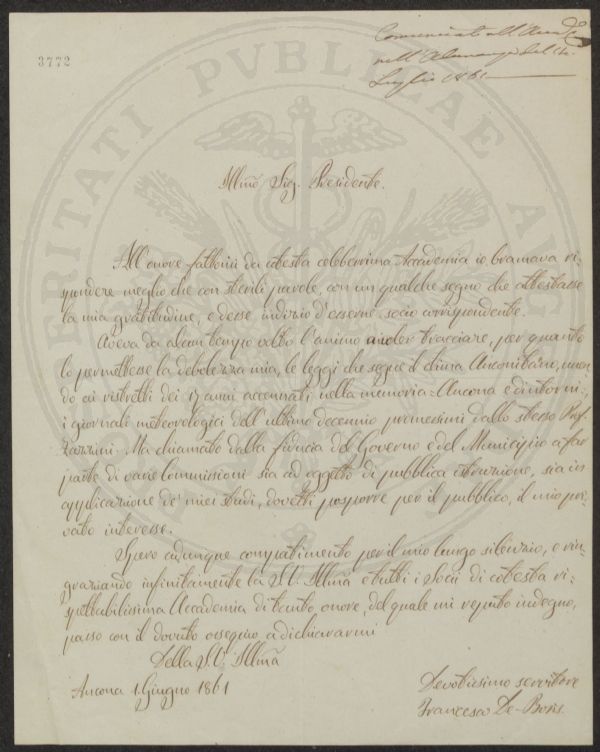 3772
Comunicata all'Accad.
nell'Adunanza del 14
Luglio 1861
Illmo Sig. Presidente.
All'onore fattomi da cotesta celeberrima Accademia io bramava ri-
spondere meglio che con sterili parole, con un qualche segno che attestasse
la mia gratitudine, e desse indizio d'esserne socio corrispondente.
Aveva da alcun tempo volto l'animo a voler tracciare, per quanto
lo permettesse la debolezza mia, le leggi che segue il clima Anconitano, unen-
do ai ristretti dei 17 anni accennati nella memoria = Ancona e dintorni =
i giornali meteorologici dell'ultimo decennio promessimi dallo stesso Prof.
Ma chiamato dalla fiducia del Governo e del Municipio a far
parte di varie Commissioni sia ad oggetto di pubblica istruzione, sia in
applicazione de' miei studi, dovetti posporre per il pubblico, il mio pri-
vato interesse.
Spero adunque compatimento per il mio lungo silenzio, e rin-
graziando infinitamente la S. V. Illma e tutti i Socii di cotesta ri-
spettabilissima Accademia di tanto onore, del quale mi reputo indegno,
passo con il dovuto ossequio a dichiararmi
Della S. V. Illma
Ancona 1. Giugno 1861
Devotissimo servitore
Francesco De-Bosis
PVBLICAE